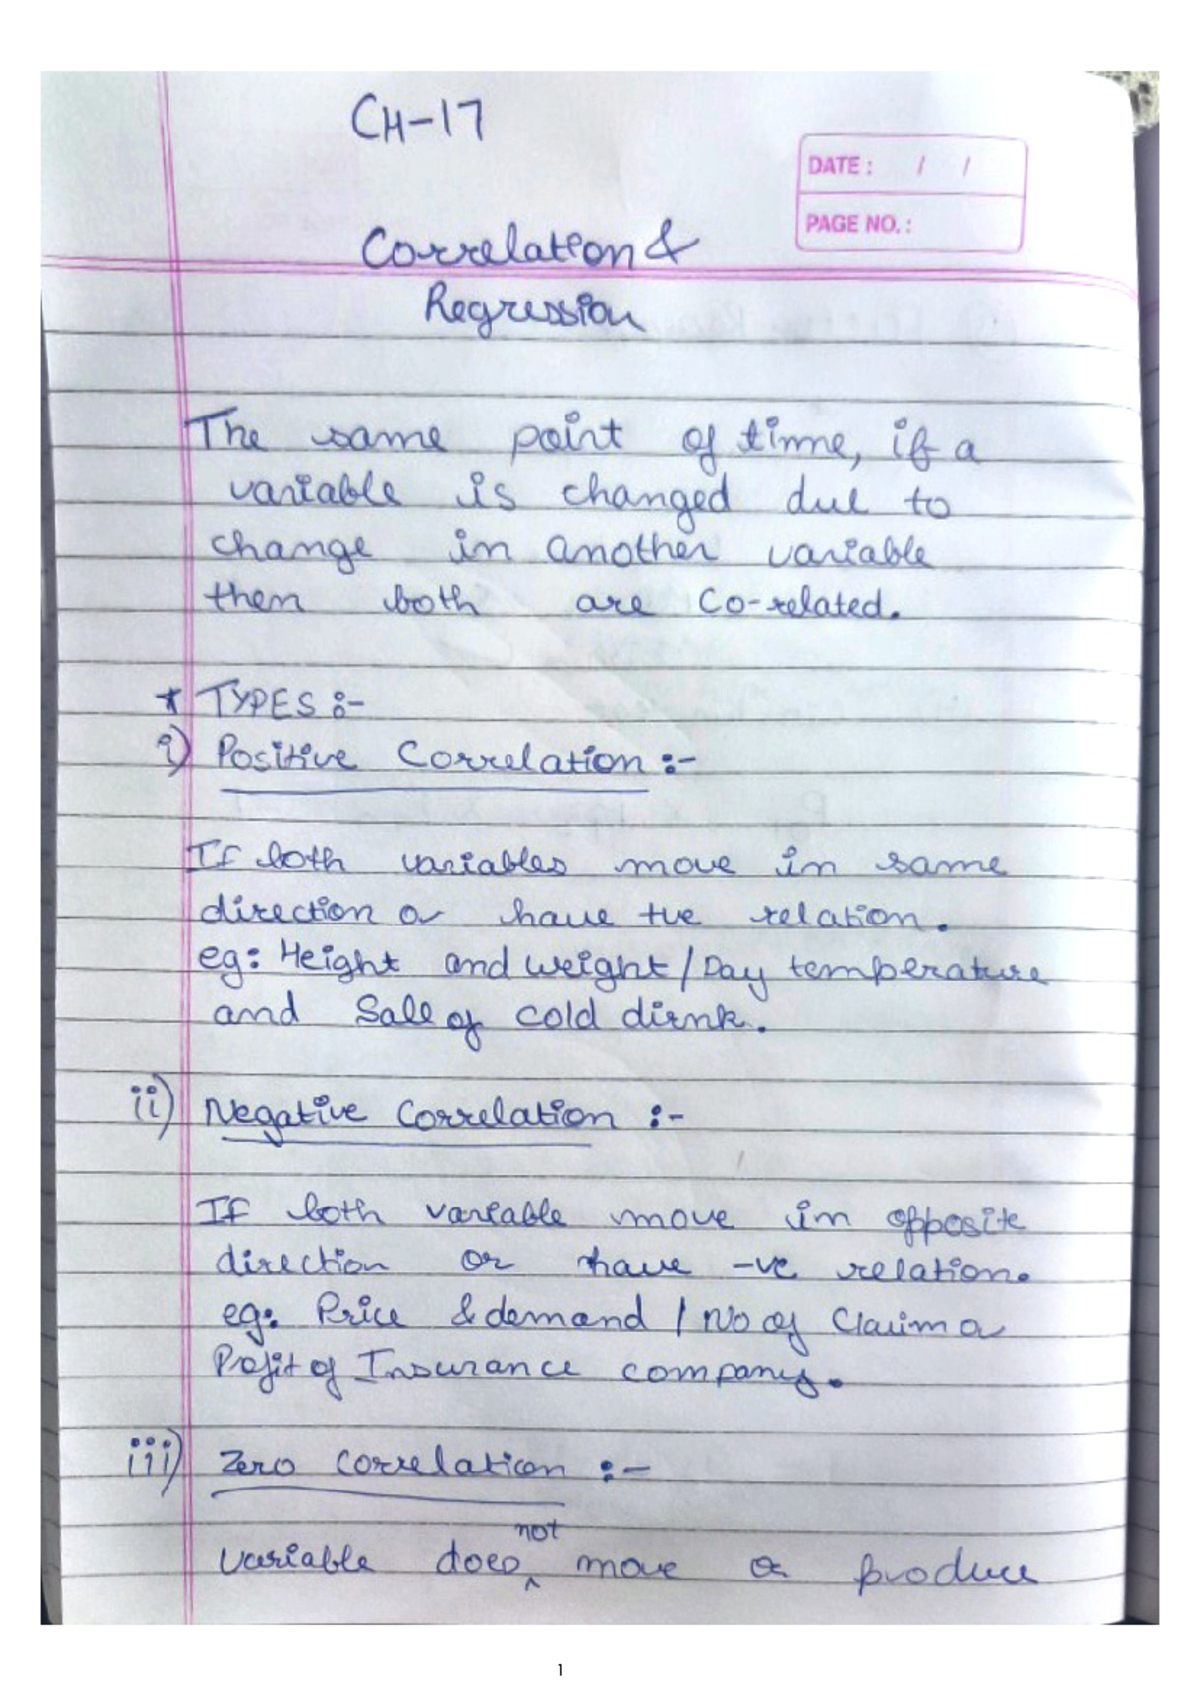 CH-17
DATE : / /
PAGE NO. :
Correlation &
Regression
The same point of time, if a
variable is changed due to
change in another variable
then both are Co-related.
* TYPES :-
i) Positive Correlation :-
If both variables move in same
direction or have +ve relation.
eg: Height and weight / Day temperature
and Sale of cold dirnk.
ii) Negative Correlation :-
If both variable move in opposite
direction or have -ve relation.
eg: Price & demand / No of Claim or
Pofit of Insurance company.
iii) Zero correlation :-
not
variable does ^ move or produce
1